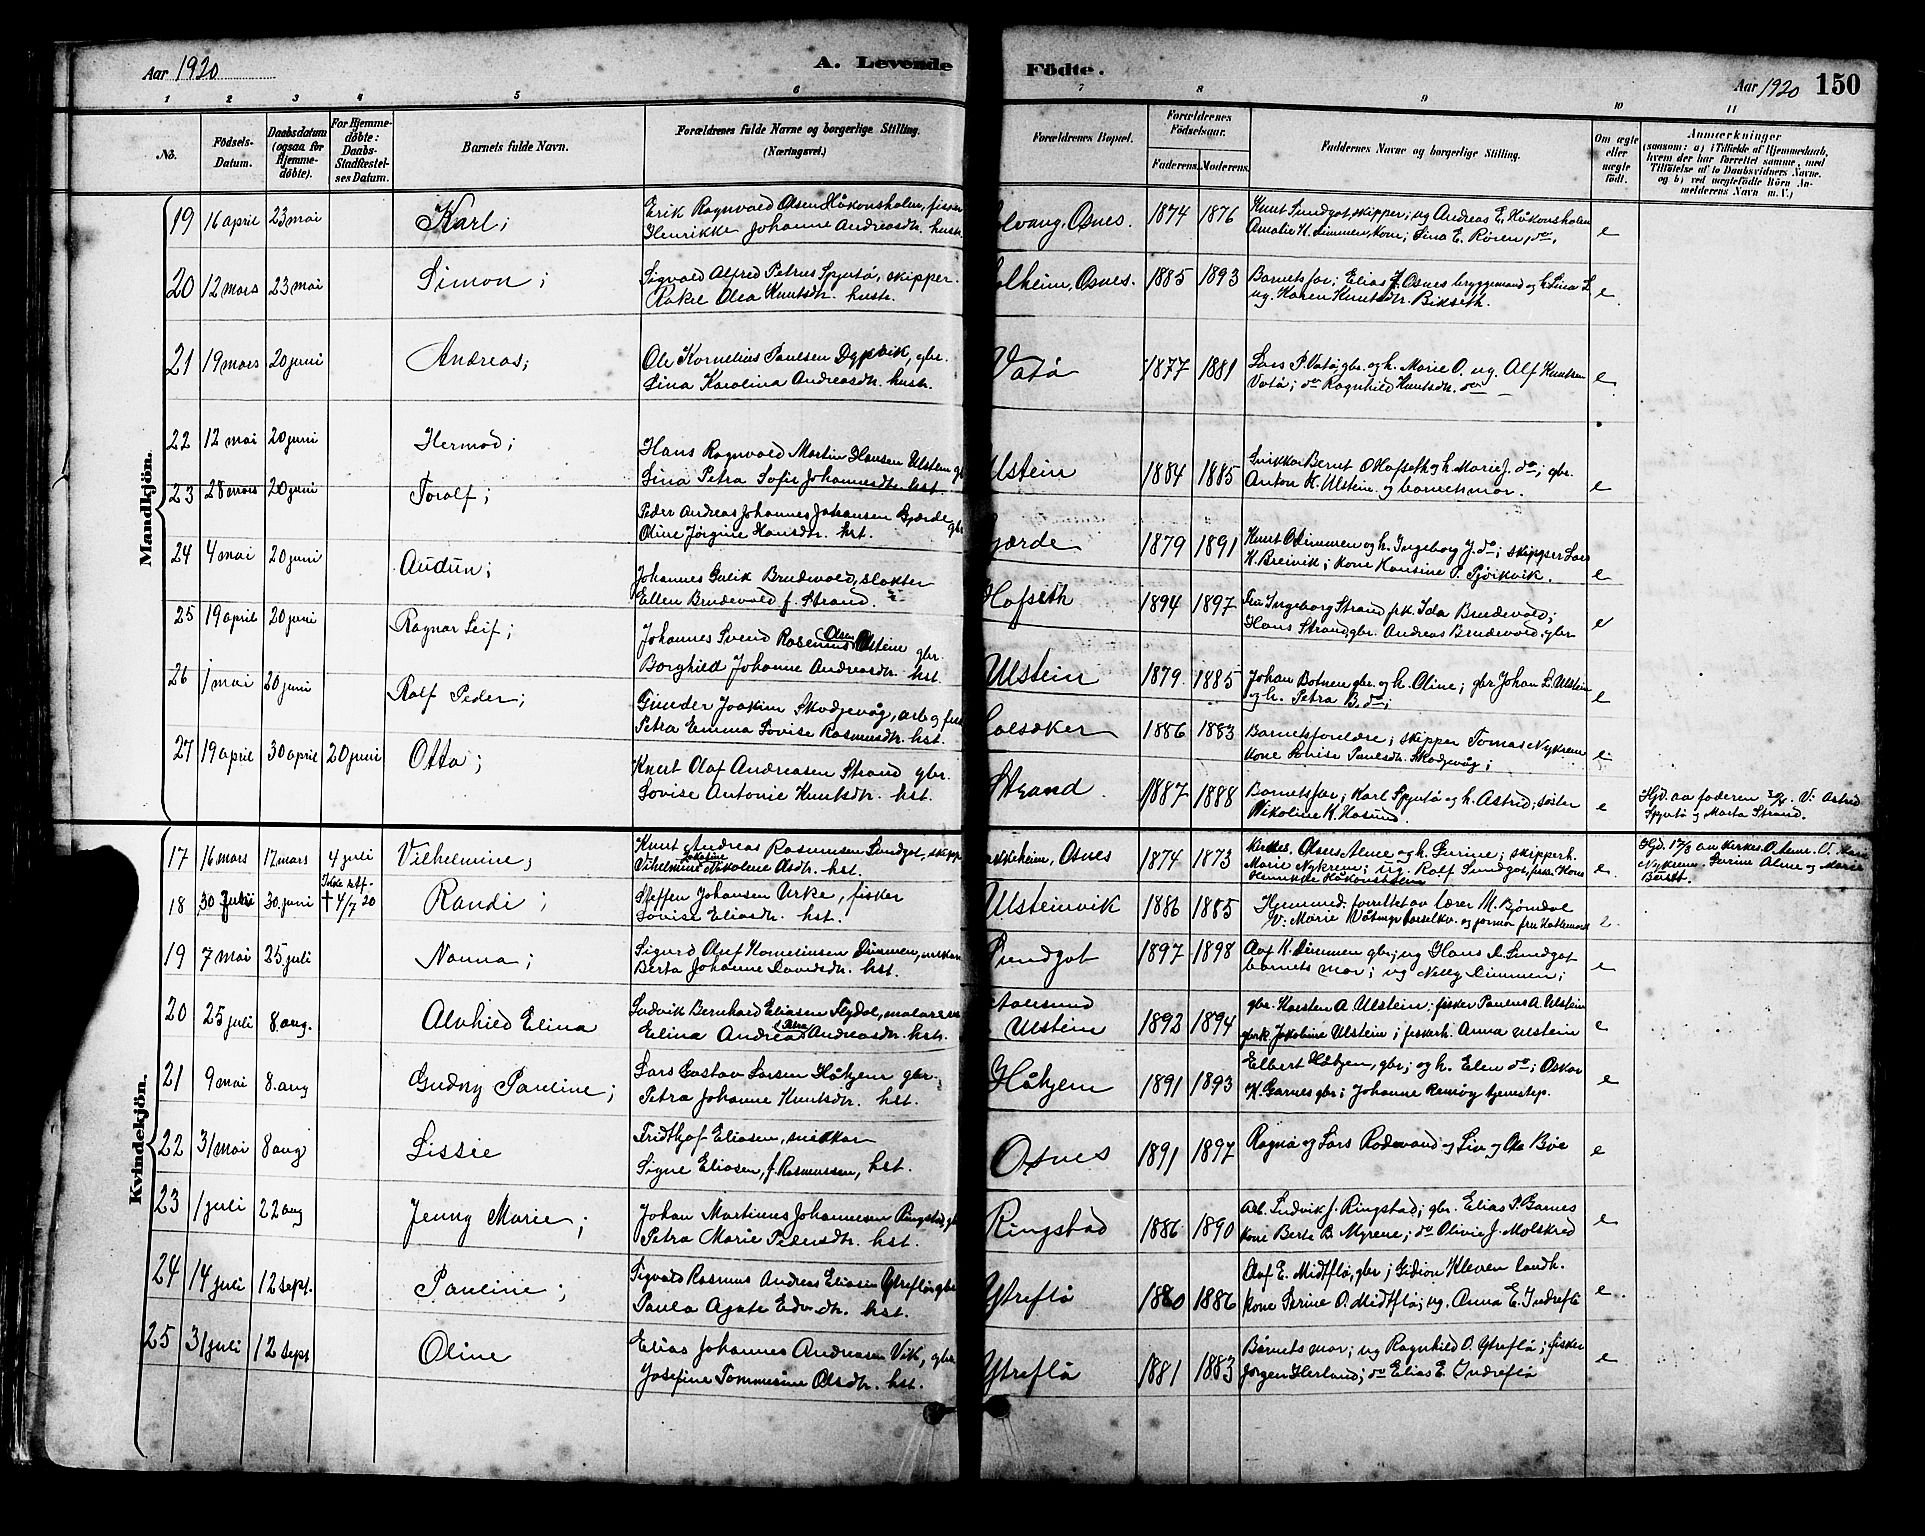 Aar 1920
A. Levende Födte.
Aar 1920 150
1 2 3 4 5 6 7 8 9 10 11
No.
Födsels-Datum.
Daabsdatum (ogsaa for Hjemmedöbte).
For Hjemmedöbte: Daabs-Stadfæstelses Datum.
Barnets fulde Navn.
Forældrenes fulde Navne og borgerlige Stilling. (Næringsvei.)
Forældrenes Bopæl.
Forældrenes Födselsaar.
Faderens. Moderens.
Faddernes Navne og borgerlige Stilling.
Om ægte eller uægte födt.
Anmærkninger
(saasom: a) i Tilfælde af Hjemmedaab, hvem der har forrettet samme, med Tilföielse af to Daabsvidners Navne, og b) ved uægtefödte Börn Anmelderens Navn m. V.)
Mandkjön.
19 16 april 23 mai Karl;
Erik Ragnvald Olsen Håkonsholm, fisker
Henrikke Johanne Andreasdr. hustr.
Osnes. 1874 1876
Knut Sundgot, skipper; ug Andreas E. Håkonsholm
Amalie K. Dimmen, kone; Lina E. Røren, do. e
20 12 mars 23 mai Simon;
Sigvald Alfred Petrus Spjutø, skipper.
Rakel Olea Knutsdr. hustr.
Solheim, Osnes. 1885 1893
Barnets far; Elias J. Osnes bryggemand og h. Lina L.
ug. Karen Knutsdr. Bidseth. e
21 19 mars 20 juni Andreas;
Ole Kornelius Paulsen Dypvik, gbr.
Lina Karolina Andreasdr. hustr.
Vatø 1877 1881
Lars P. Vatø gbr. og h. Marie O. ug. Alf Knutsen
Vatø; do Ragnhild Knutsdr. do e
22 12 mai 20 juni Hermod;
Hans Ragnvald Martin Hansen Ulstein
Lina Petra Sofie Johannesdr. hst.
Ulstein 1884 1885
Snikkar Bernt O Hofseth og h. Marie J. do; gbr.
Anton K. Ulstein og barnets mor. e
23 28 mars 20 juni Toralf;
Peder Andreas Johannes Johansen Gjærde gbr
Oline Jørgine Hansdr. hst.
Gjærde 1879 1891
Knut O Dimmen og h. Ingeborg J. do; skipper Lars
K. Breivik; kone Hansine P. e
24 4 mai 20 juni Audun;
Johannes Gulik Brudevold, slakter
Ellen Brudevold f. Strand.
Hofseth 1894 1897
Fru Ingeborg Strand frk. Ida Brudevold;
Hans Strand gbr. Andreas Brudevold, gbr e
25 19 april 20 juni Ragnar Leif;
Johannes Svend Rasmus Olsen Ulstein gbr.
Borghild Johanne Andreasdr. hst.
Ulstein 1879 1885
Johan Botnen gbr. og h. Oline; gbr Johan L. Ulstein
og h. Petra B. do; e
26 1 mai 20 juni Rolf Peder;
Gunder Joakim Skodjevåg, arb og
Petra Emma Lovise Rasmusdr. hst.
1886 1883
Barnets foreldre; skipper Tomas Nykrem
kone Lovise Paulsdr. Skodjevåg; e
27 19 april 30 april 20 juni Otto;
Knut Olaf Andreasen Strand gbr.
Lovise Antonie Knutsdr. hst.
Strand 1887 1888
Barnets far; Karl Spjutø og h. Astrid; søster
Nikoline K. Hasund e
Hjd. av faderen V: Astrid
Spjutø og Marta Strand.
Kvindekjön.
17 16 mars 17 mars 4 juli Vilhelmine;
Knut Andreas Rasmussen Sundgot, skipp
Vilhelmine Jakobine Nikoline Olsdr. hst.
Osnes 1874 1873
Olsens Alme og h. Gurine; skipperh.
Marie Nykrem; ug. Rolf Sundgot, Hans
Henrikke Håkonsholm e.
Hjd. 17/3
Nykrem. Gurine Alme og Marie
18 30 juni 30. juni Ikke stf. † 4/7 20 Randi;
Steffen Johansen Arke, fisker
Lovise Eliasdr. hst.
Ulsteinvik 1886 1885
Hjemmed. forrettet av lærer M. Bjøndal
V: Marie og jormor fru
19 7 mai 25 juli Nanna;
Sigurd Olaf Kornelinsen Dimmen,
Berta Johanne Davidsdr. hst.
Sundgot 1897 1898
Olaf K. Dimmen gbr; ug Hans L. Sundgot
barnets mor; ug Nelly Dimmen; e
20 25 juli 8. aug. Alvhild Elina
Ludvik Bernhard Eliasen Flydal, maler
Elina Andrea Petra Andreasdr. hst.
Aalesund
Ulstein 1892 1894
gbr. Karsten A. Ulstein; fisker Paulus A. Ulstein
gbrk. Jakobine Ulstein; fiskerh. Anna Ulstein e
21 9 mai 8. aug Gudny Pauline;
Lars Gustav Larsen Håhjem gbr.
Petra Johanne Knutsdr. hst.
Håhjem 1891 1893
Elbert Håhjem, gbr; og h. Elen do; Oskar
K. Garnes gbr; Johanne Remøy tjenestep. e
22 31 mai 8 aug Lissie
Fridthjof Eliasen, snikkar
Signe Eliasen, f. Rasmussen, hst.
Osnes 1891 1897
Ragna og Lars Rødsand og Liv og Ole Bøe e
23 1 juli 22 aug Jenny Marie;
Johan Martinus Johannesen Ringstad gbr
Petra Marie Pedersdr. hst.
Ringstad 1886 1890
Arb. Ludvik J. Ringstad; gbr. Elias P. Garnes
kone Berte B. Myrene; do Olivie J. Molskred e
24 14 juli 12 sept. Pauline;
Sigvald Rasmus Andreas Eliasen Ytreflø gbr
Paula Agate Edv.dr. hst.
Ytreflø 1880 1886
Olaf E. Midtflø, gbr; Gidion Kleven landh.
kone Serine O. Midtflø; ug. Anna E. Indreflø e
25 31 juli 12 sept Oline
Elias Johannes Andreasen Vik, gbr
Josefine Tommesine Olsdr. hst.
Ytreflø 1881 1883
Barnets mor; ug Ragnhild O. Ytreflø; fisker
Jørgen Herland; do Elias E. Indreflø e